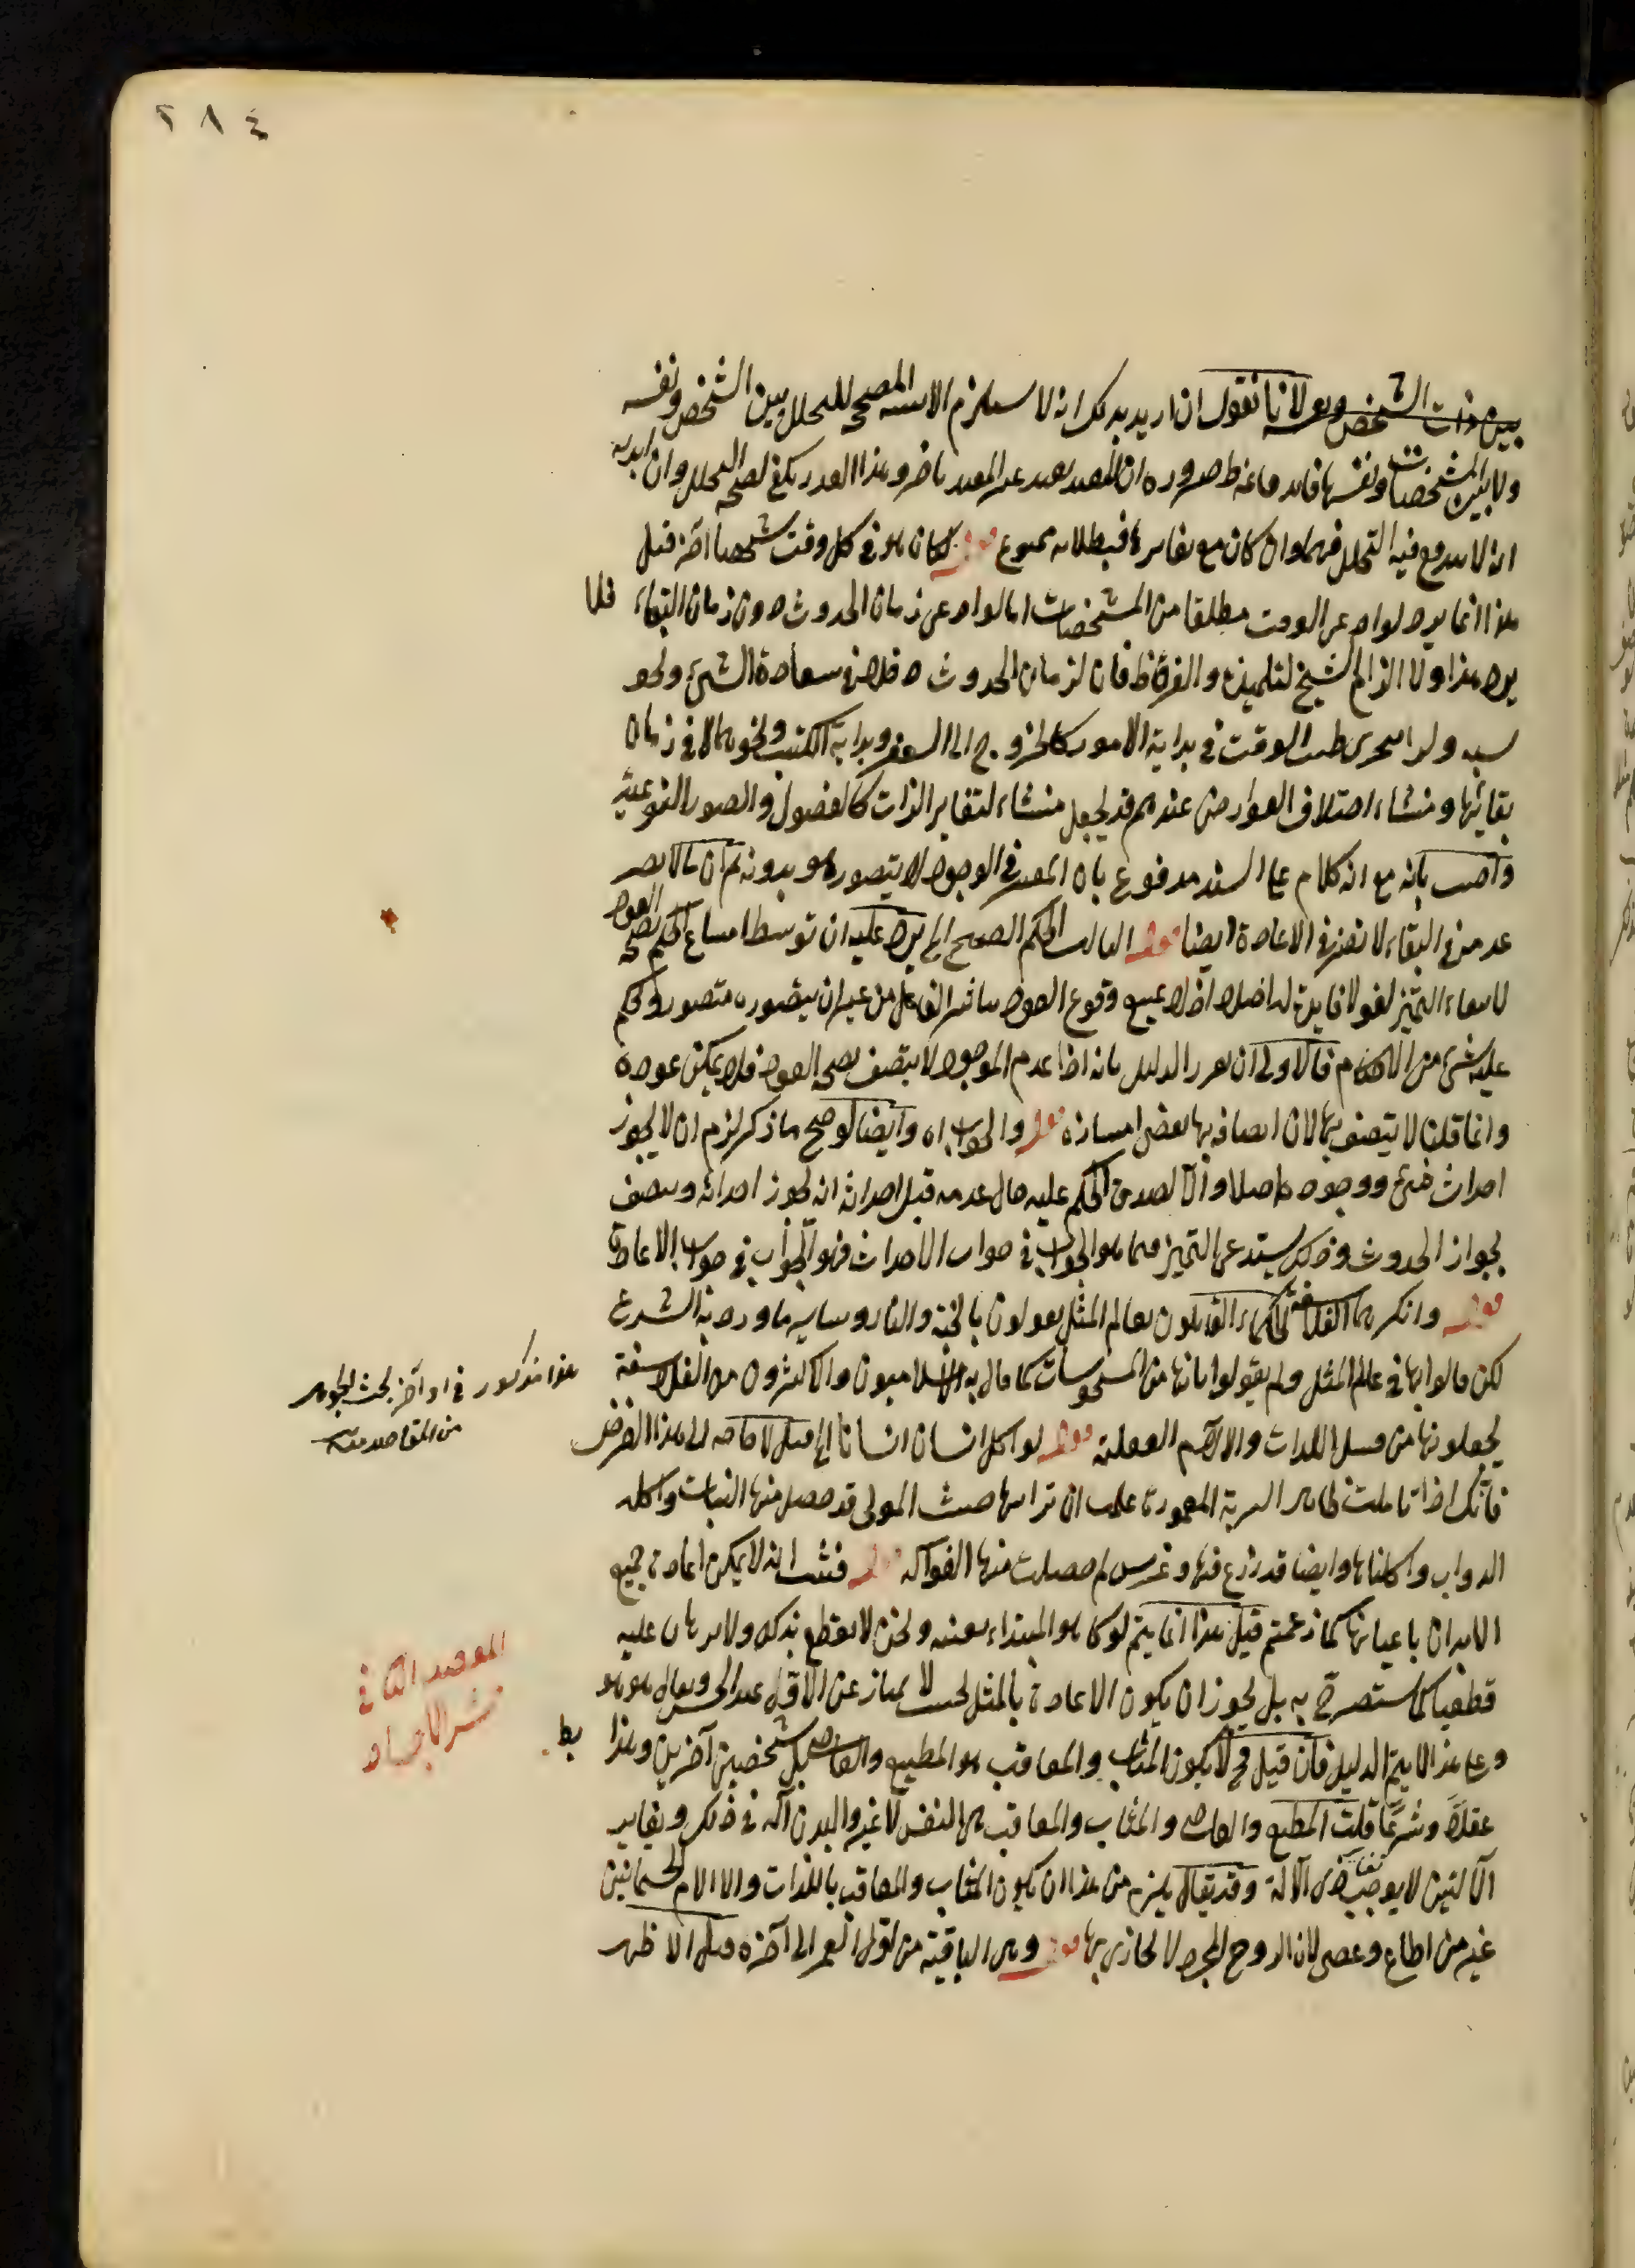 ٢٨٤
بين ذات الشخص ونعو لانا نقول ان اريد بذلك انه لا يستلزم الاثنينية المصححة للتخلل بين الشخص ونفسه
ولا بين المشخصات ونفسها فانه مغالطة ضرورة ان المقيد بعيد غير المقيد باخر وهذا القدر يكفي لصحة التخلل وان اريد به
انه لا يندفع فيه التخلل فيها وان كان مع تغايرها فبطلانه ممنوع قوله لكان هو في كل وقت شخصا آخر قيل
هذا انما يرد لو اد عي الوقت مطلقا من المشخصات اما لو اد عي زمان الحدوث دون زمان البقاء فلا
يرد هذا ولا الزام الشيخ لتلميذه والفرق ظ فان لزمان الحدوث دخلا في سعادة الشيء ونحو
سته ولذا يتحرى طيب الوقت في بداية الامور كالخروج الى السفر وبداية الكتب ونحوهما لا في زمان
بقائها ومنشاء اختلاف العوارض عندهم قد يجعل منشاء لتغاير الذات كالفصول والصور النوعية
واجيب بانه مع انه كلام على السند مدفوع بان المعتبر في الوجود لا يتصور هو بدونه ثم ان ما لا يضر
عدمه في البقاء لا يضر في الاعادة ايضا قوله الثالث الحكم الصحيح الخ يرد عليه ان توسط امتناع الحكم بصحة العود
لانتفاء التميز لغو لا فايدة له اصلا اذ لا يمنع وقوع العود تاثير الفاعل من غير ان يتصوره متصور ويحكم
عليه بشيء من الاحكام فالاولى ان يقرر الدليل بانه اذا عدم الموجود لا يتصف بصحة العود فلا يمكن عوده
وانما قلنا لا يتصف بها لان اتصافه بها يقتضي امتيازه قوله والجواب اه وايضا لو صح ما ذكر لزم ان لا يجوز
احداث شيء ووجوده اصلا والا لصدق الحكم عليه حال عدمه قبل احداثه انه يجوز احداثه ويتصف
بجواز الحدوث وذلك يستدعي التميز فما هو الجواب في صواب الاحداث فهو الجواب في صواب الاعادة
قوله وانكرهما الفلاسفة الحكماء القائلون بعالم المثل يقولون بالجنة والنار وساير ما ورد به الشرع
لكن قالوا انها في عالم المثل ولم يقولوا بانها من المحسوسات كما قال به الاسلاميون والاكثرون من الفلاسفة
يجعلونها من قبيل اللذات والالام العقلية قوله لو اكل انسان انسانا الخ قيل لا حاجة الى هذا الفرض
فانك اذا تاملت ظاهر التربة المعمورة علمت ان ترابها جثث الموتى قد حصل منها النبات واكله
الدواب واكلناها وايضا قد زرع فيها وغرس ثم حصلت منها الفواكه قوله فثبت انه لا يمكن اعادة جميع
الابدان باعيانها كما زعمتم قيل هذا انما يتم لو كا هو المبتداء بعينه ونحن لا نقطع بذلك ولا برهان عليه
قطعيا كما ستصرح به بل يجوز ان يكون الاعادة بالمثل بحيث لا يمتاز عن الاول عند الحس ويقال هو هو
وعلى هذا لا يتم الدليل فان قيل فح لا يكون المثاب والمعاقب هو المطيع والعاصي بل شخصين آخرين وهذا بط
عقلا وشرعا قلت المطيع والعاصي والمثاب والمعاقب هي النفس لا غير والبدن آلة في ذلك وتغاير
الالتين لا يوجب تغاير ذي الآلة وقد يقال يلزم من هذا ان يكون المثاب والمعاقب باللذات والالام الجسمانيتين
غير من اطاع وعصى لان الروح المجرد لا يجازى بها قوله وهي الباقية من اول العمر الى آخره قيل الاظهر
هذا مذكور في اواخر بحث الجوهر
من المقاصد منه
المقصد الثاني في
حشر الاجساد